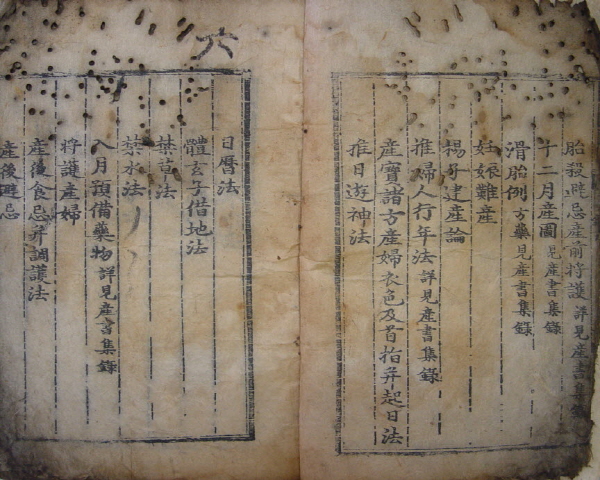 胎殺避忌産前将護詳見産書集錄
十二月産圖見産書集錄
滑胎例方藥見産書集錄
妊娠難産
楊子建産論
推婦人行年法詳見産書集錄
産寶諸方産婦衣色及首指并起日法
推日遊神法
六
日曆法
體玄子借地法
禁草法
禁水法
八月預備藥物詳見産書集錄
将護産婦
産後食忌并調護法
産後避忌